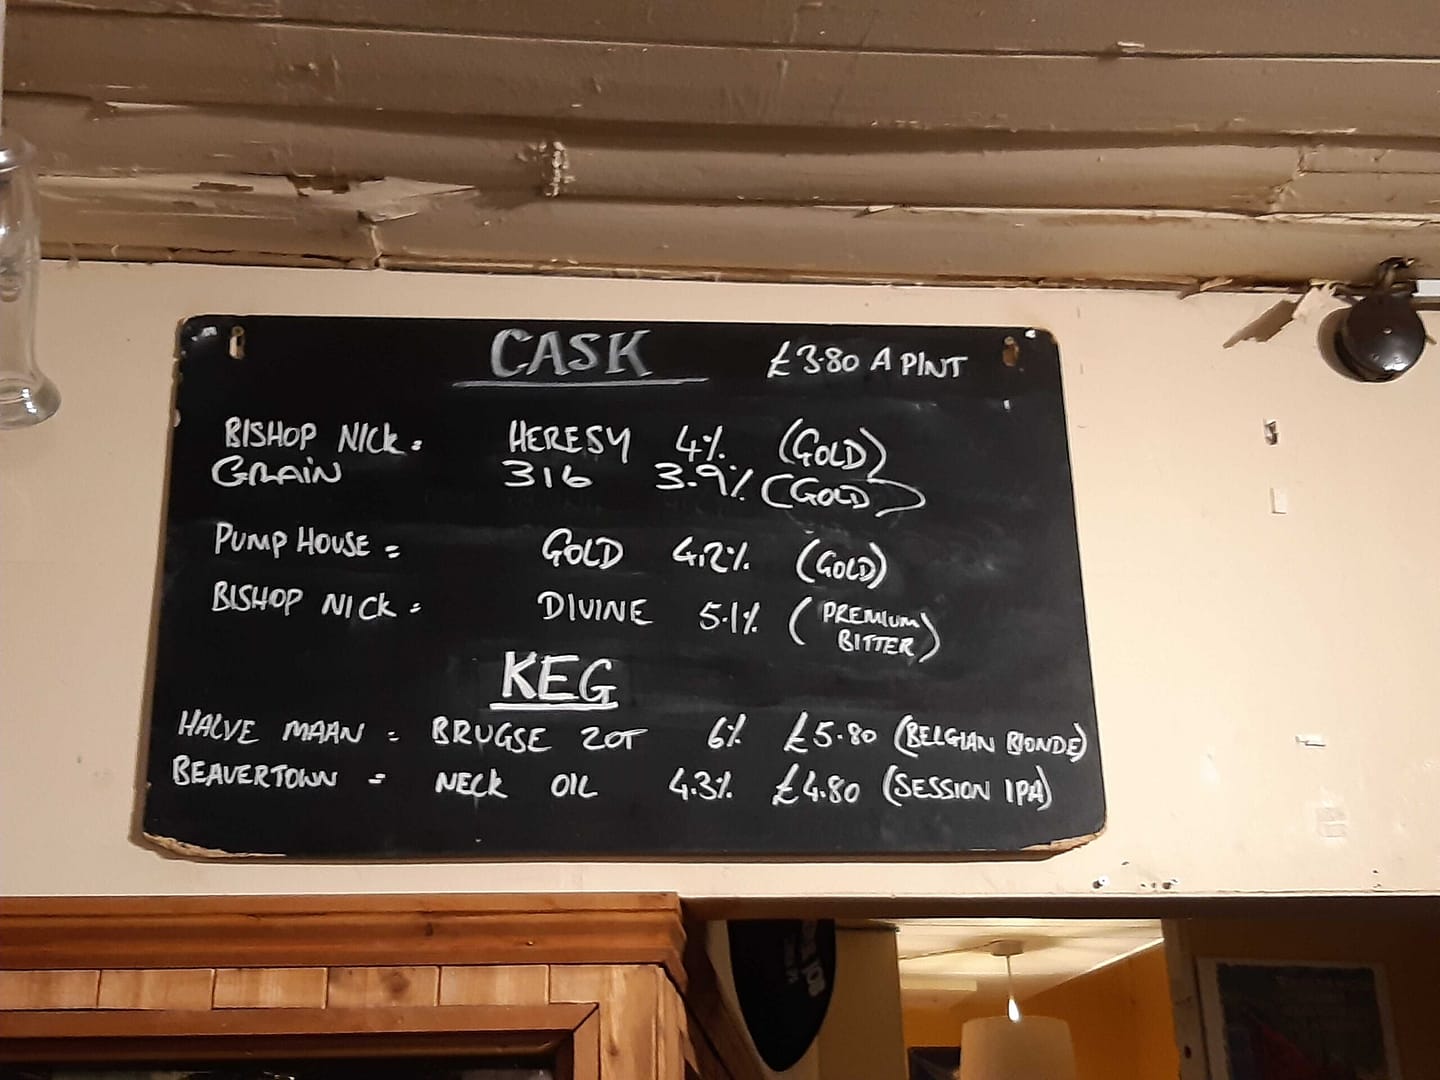 CASK £3.80 A PINT
BISHOP NICK = HERESY 4% (GOLD)
GRAIN 316 3.9% (GOLD)
PUMP HOUSE = GOLD 4.2% (GOLD)
BISHOP NICK = DIVINE 5.1% (PREMIUM
BITTER)
KEG
HALVE MAAN = BRUGSE ZOT 6% £5.80 (BELGIAN BLONDE)
BEAVERTOWN = NECK OIL 4.3% £4.80 (SESSION IPA)